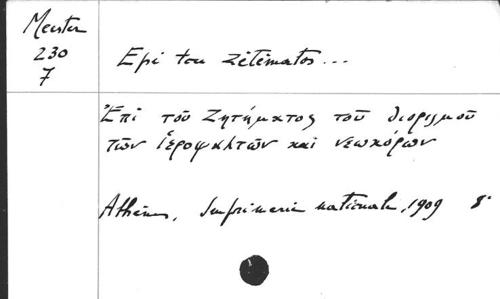 Meester
230
7
Epi tou zètèmatos...
Ἐπὶ τοῦ Ζητήματος τοῦ διορισμοῦ
τῶν Ἱεροψαλτῶν καὶ νεωκόρων
Athènes, Imprimerie nationale, 1909 8°